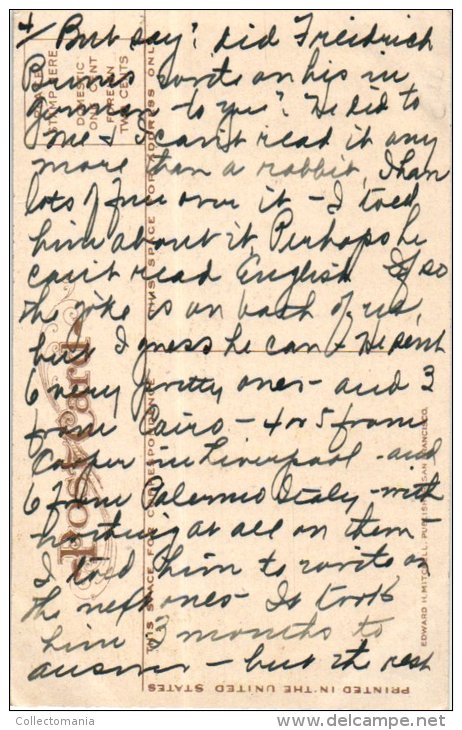 4/ But say? did Freidrich
Bruns write on his in
german to you? He did to
me & I can't read it any
more than a rabbit, I han
lots of fun over it - I toed
him about it Perhaps he
can't read English If so
the joke is on both of us,
but I guess he can - He sent
6 very pretty ones - and 3
from Cairo - 4 or 5 from
Cooper in Liverpool - and
6 from Palermo Italy - with
nothing at all on them -
I toed him to write on
the next ones - It took
him 3 months to
answer - but the rest
Post Card
PLACE
STAMP HERE
DOMESTIC
ONE CENT
FOREIGN
TWO CENTS
THIS SPACE FOR ADDRESS ONLY
THIS SPACE FOR CORRESPONDENCE
EDWARD H. MITCHELL, PUBLISHER, SAN FRANCISCO.
PRINTED IN THE UNITED STATES
Collectomania
delcampe.net